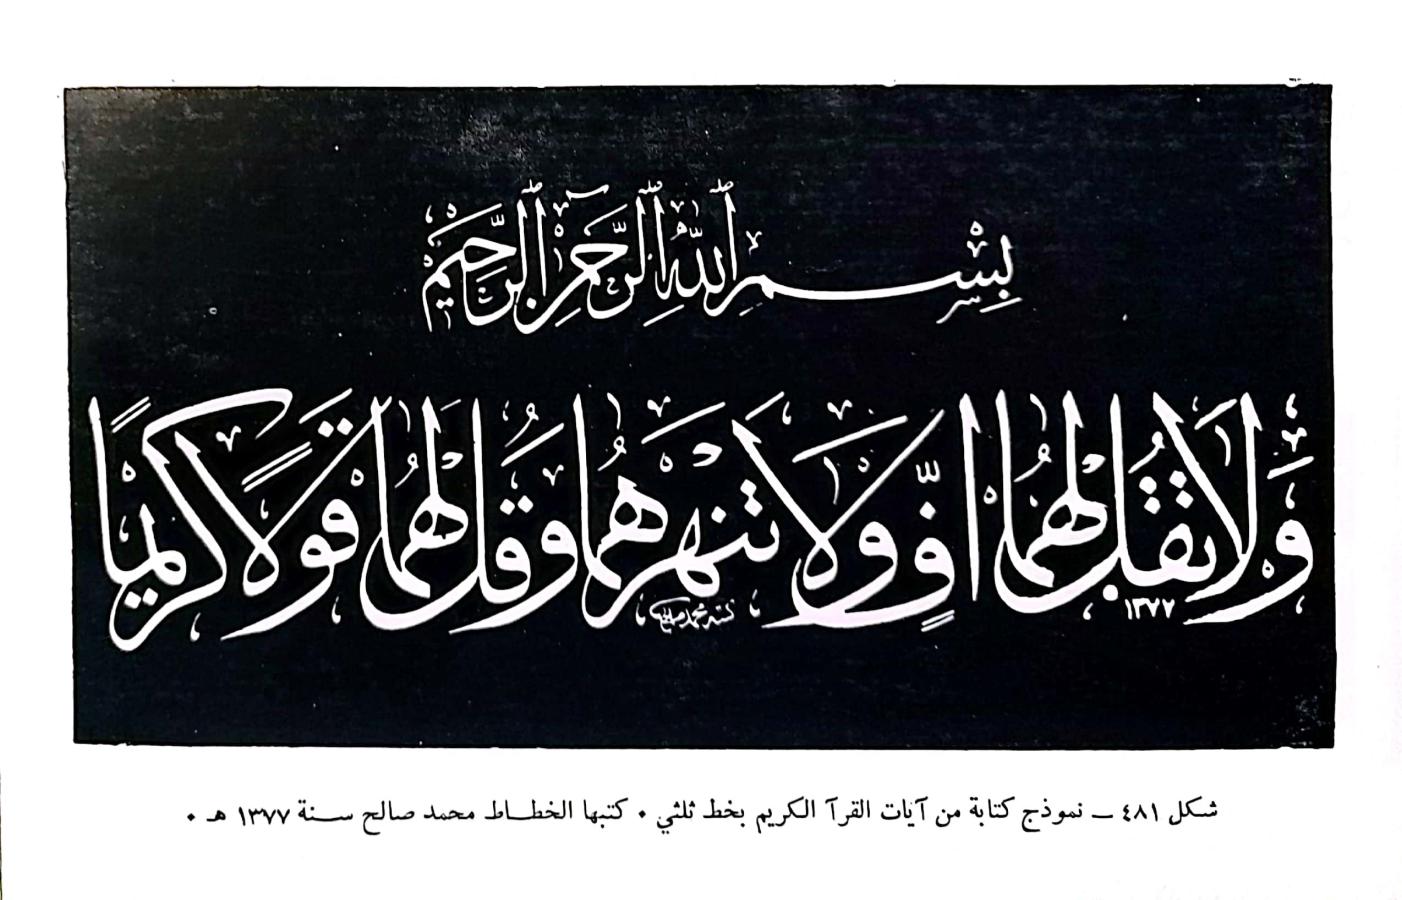 بِسْمِ اللّٰهِ الرَّحْمٰنِ الرَّحِيمِ
وَلَا تَقُل لَهُمَا أُفٍّ وَلَا تَنْهَرْهُمَا وَقُل لَهُمَا قَوْلًا كَرِيمًا
١٣٧٧
كتبه محمد صالح
شكل ٤٨١ ــ نموذج كتابة من آيات القرآ الكريم بخط ثلثي ٠ كتبها الخطاط محمد صالح سنة ١٣٧٧ هـ ٠